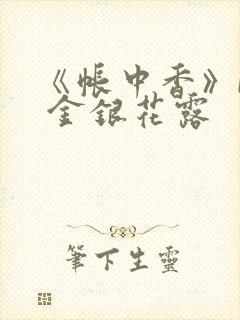 《帳中香》
金銀花露
筆下生靈